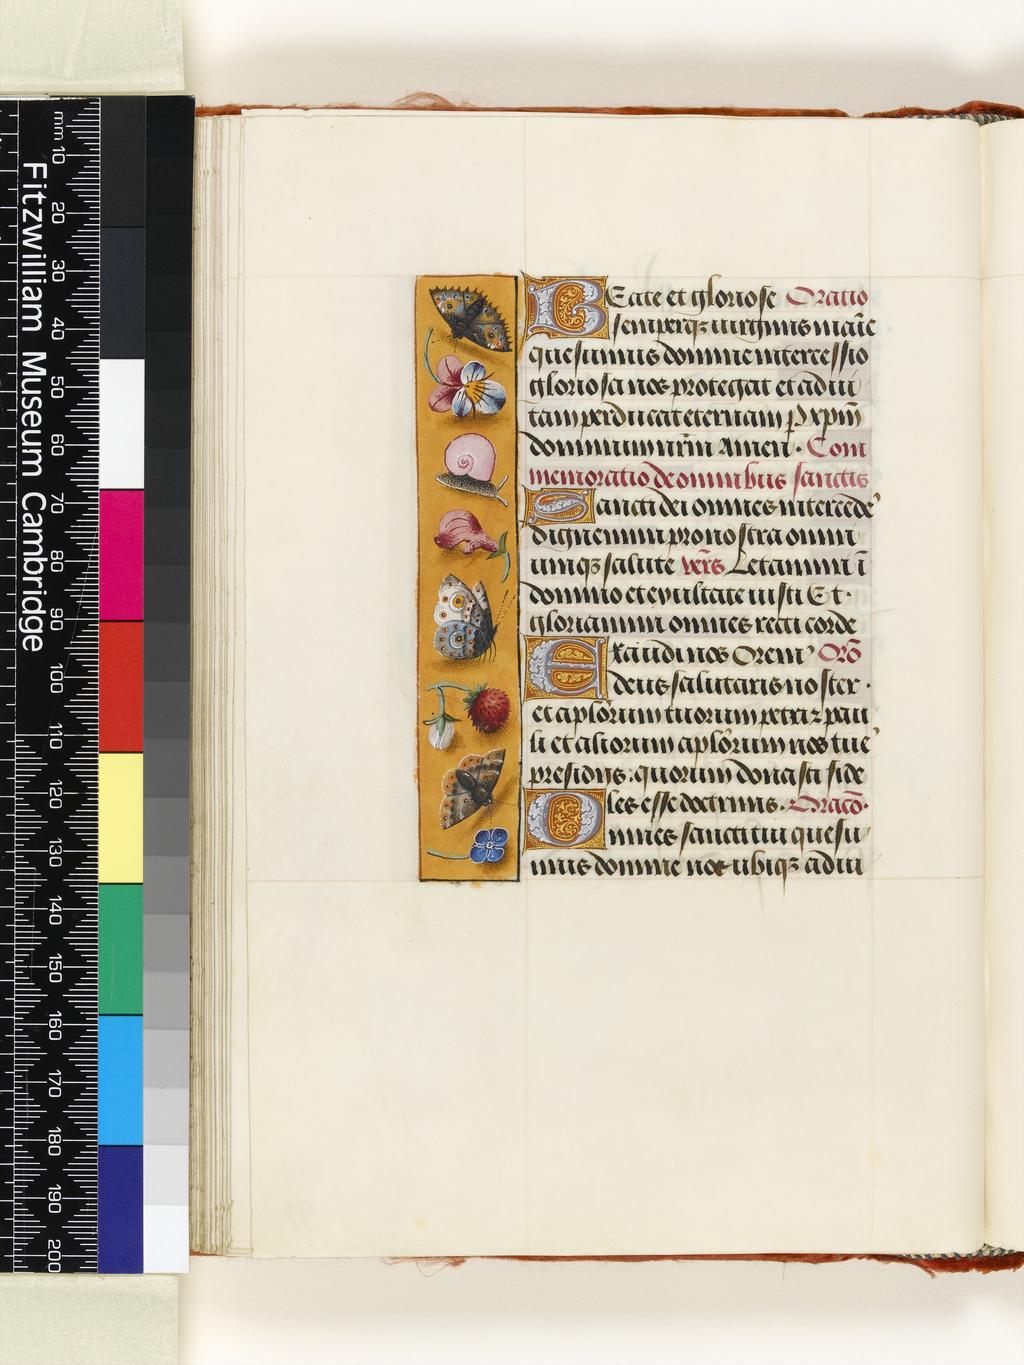 Fitzwilliam Museum Cambridge
mm 10 20 30 40 50 60 70 80 90 100 110 120 130 140 150 160 170 180 190 200
BEate et gloriose Oratio
semperqꝫ uirginis marie
quesumus domine intercessio
gloriosa nos protegat et ad uı
tam perducat eternam ꝑ xp̄m
dominum nr̄m Amen · Com
memoratio de omnibus sanctis
Sancti dei omnes intercede
dignemini pro nostra omni
umqꝫ salute vers̄ Letamini ī
domino et exultate iusti Et ·
gloriamini omnes recti corde
Exaudi nos Orem̄ Oro̅
deus salutaris noster ·
et aplorum tuorum petri ꝫ pau
li et aliorum aplo̅rum nos tue
presidijs : quorum donasti fide
les esse doctrinis · Oraco̅ ·
Omnes sancti tui quesu
mus domine nos ubiqꝫ adiu